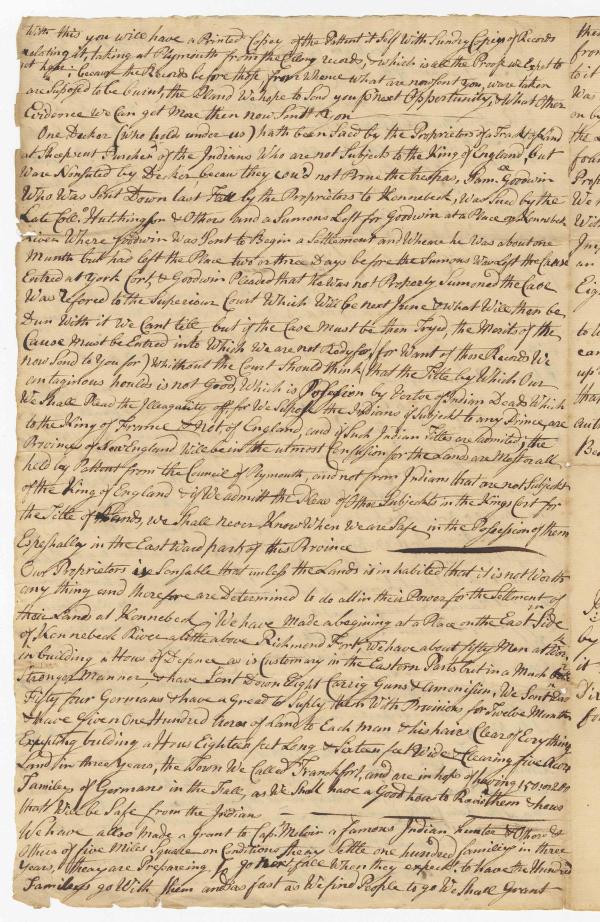 With this you will have a Printed Copey of the Pattent it Self With Sundry Copies of Records
relating it, taking at Plymouth from the Colony records, & which is all the Proof we Expect to
get hear: because the Records before those from Whence what are now sent you, ware taken
are Suposed to be burnt, the Pland We hope to Send you p next Opportunity, & What Other
Evidence we can get More then now Sent
One Decker (who hold under us) hath been Sued by the Proprietors of a Tract of Land
at Sheepscut Purches'd of the Indians Who are not Subjects to the King of England, but
Ware Nonsuted by Decker, becau they cou'd not Prove the trespas, Sam. Goodwin
Who Was Sent Down last Fall by the Proprietors to Kennebeck, Was Sued by the
Late Coll. Huthington & Others and a Sumons Left for Goodwin at a Place on Kennebeck
River Where Goodwin Was Sent to Begin a Settlement and Whare he Was about one
Munth but had left the Place two or three Days before the Sumons Was left the Cause
Entred at York Cort, & Goodwin Pleaded that he Was not Properly Sumoned the Case
Was refored to the Superiour Court Which Will be next June & what Will then be
Dun With it We Cant tell, but if the Case Must be then Tryed, the Merits of the
Cause Must be Entred into Which We are not Redy for, for Want of those Records We
now Send to You for) Whithout the Court Should think that the Title by Which Our
antagirous houlds is not Good, Which is Possession by Vertue of Indian Deads Which
We Shall Plead the Illeagallity off, for We Suppose the Indians if Subject to any Prince, are
to the King of France & not, of England, and if Such Indian Titles are admited, the
Province of New England Will be in the utmost Confusion for the Lands are Most or all
held by Pattent from the Councel of Plymouth, and not from Indians that are not Subjects
of the King of England & if We admitt the Pleas of Other Subjects in the Kings Cort for
the Title of Lands, we Shall never Know When We are Safe in the Possession of them
Espeshally in the East Ward part of this Province
Our Proprietors is Sensable that unless the Lands is in habited that it is not Worth
any thing and therefore are Determined to do all in their Power for the Settlement of
their Land at Kennebeck, We have Made a begining at a Place on the East Side
of Kennebeck River a little above Richmond Fort, We have about fifty Men at
in building a Hous of Defence as is Customary in the Eastern Parts but in a Much
Stronger Manner & have Sent Down Eight Carrig Guns & Amonision, We Sent
Fifty four Germans & have a Greed to Suply them With Provisions for Twelve Months
& have Given One Hundred Acres of Land to Each man & his hairs Clear of Every thing
Excepting building a Hous Eighteen feet Long & Sixteen feet Wide & Clearing five Acors
Land in three Years, the Town We Called Frankfort, and are in hops of having 150 or 200
Familes of Germans in the Fall, as We Shall have a Good hous to Recive them & hous
that Will be Safe from the Indian
We have allso Made a Grant to Cap. a famous Indian Hunter & Others
of five Miles Square on Conditions they Settle one hundred familieys in three
Years, they are Prepareing to go next fall When they expect to have the Hundred
Familieys go With them and as fast as We find People to go We Shall Grant